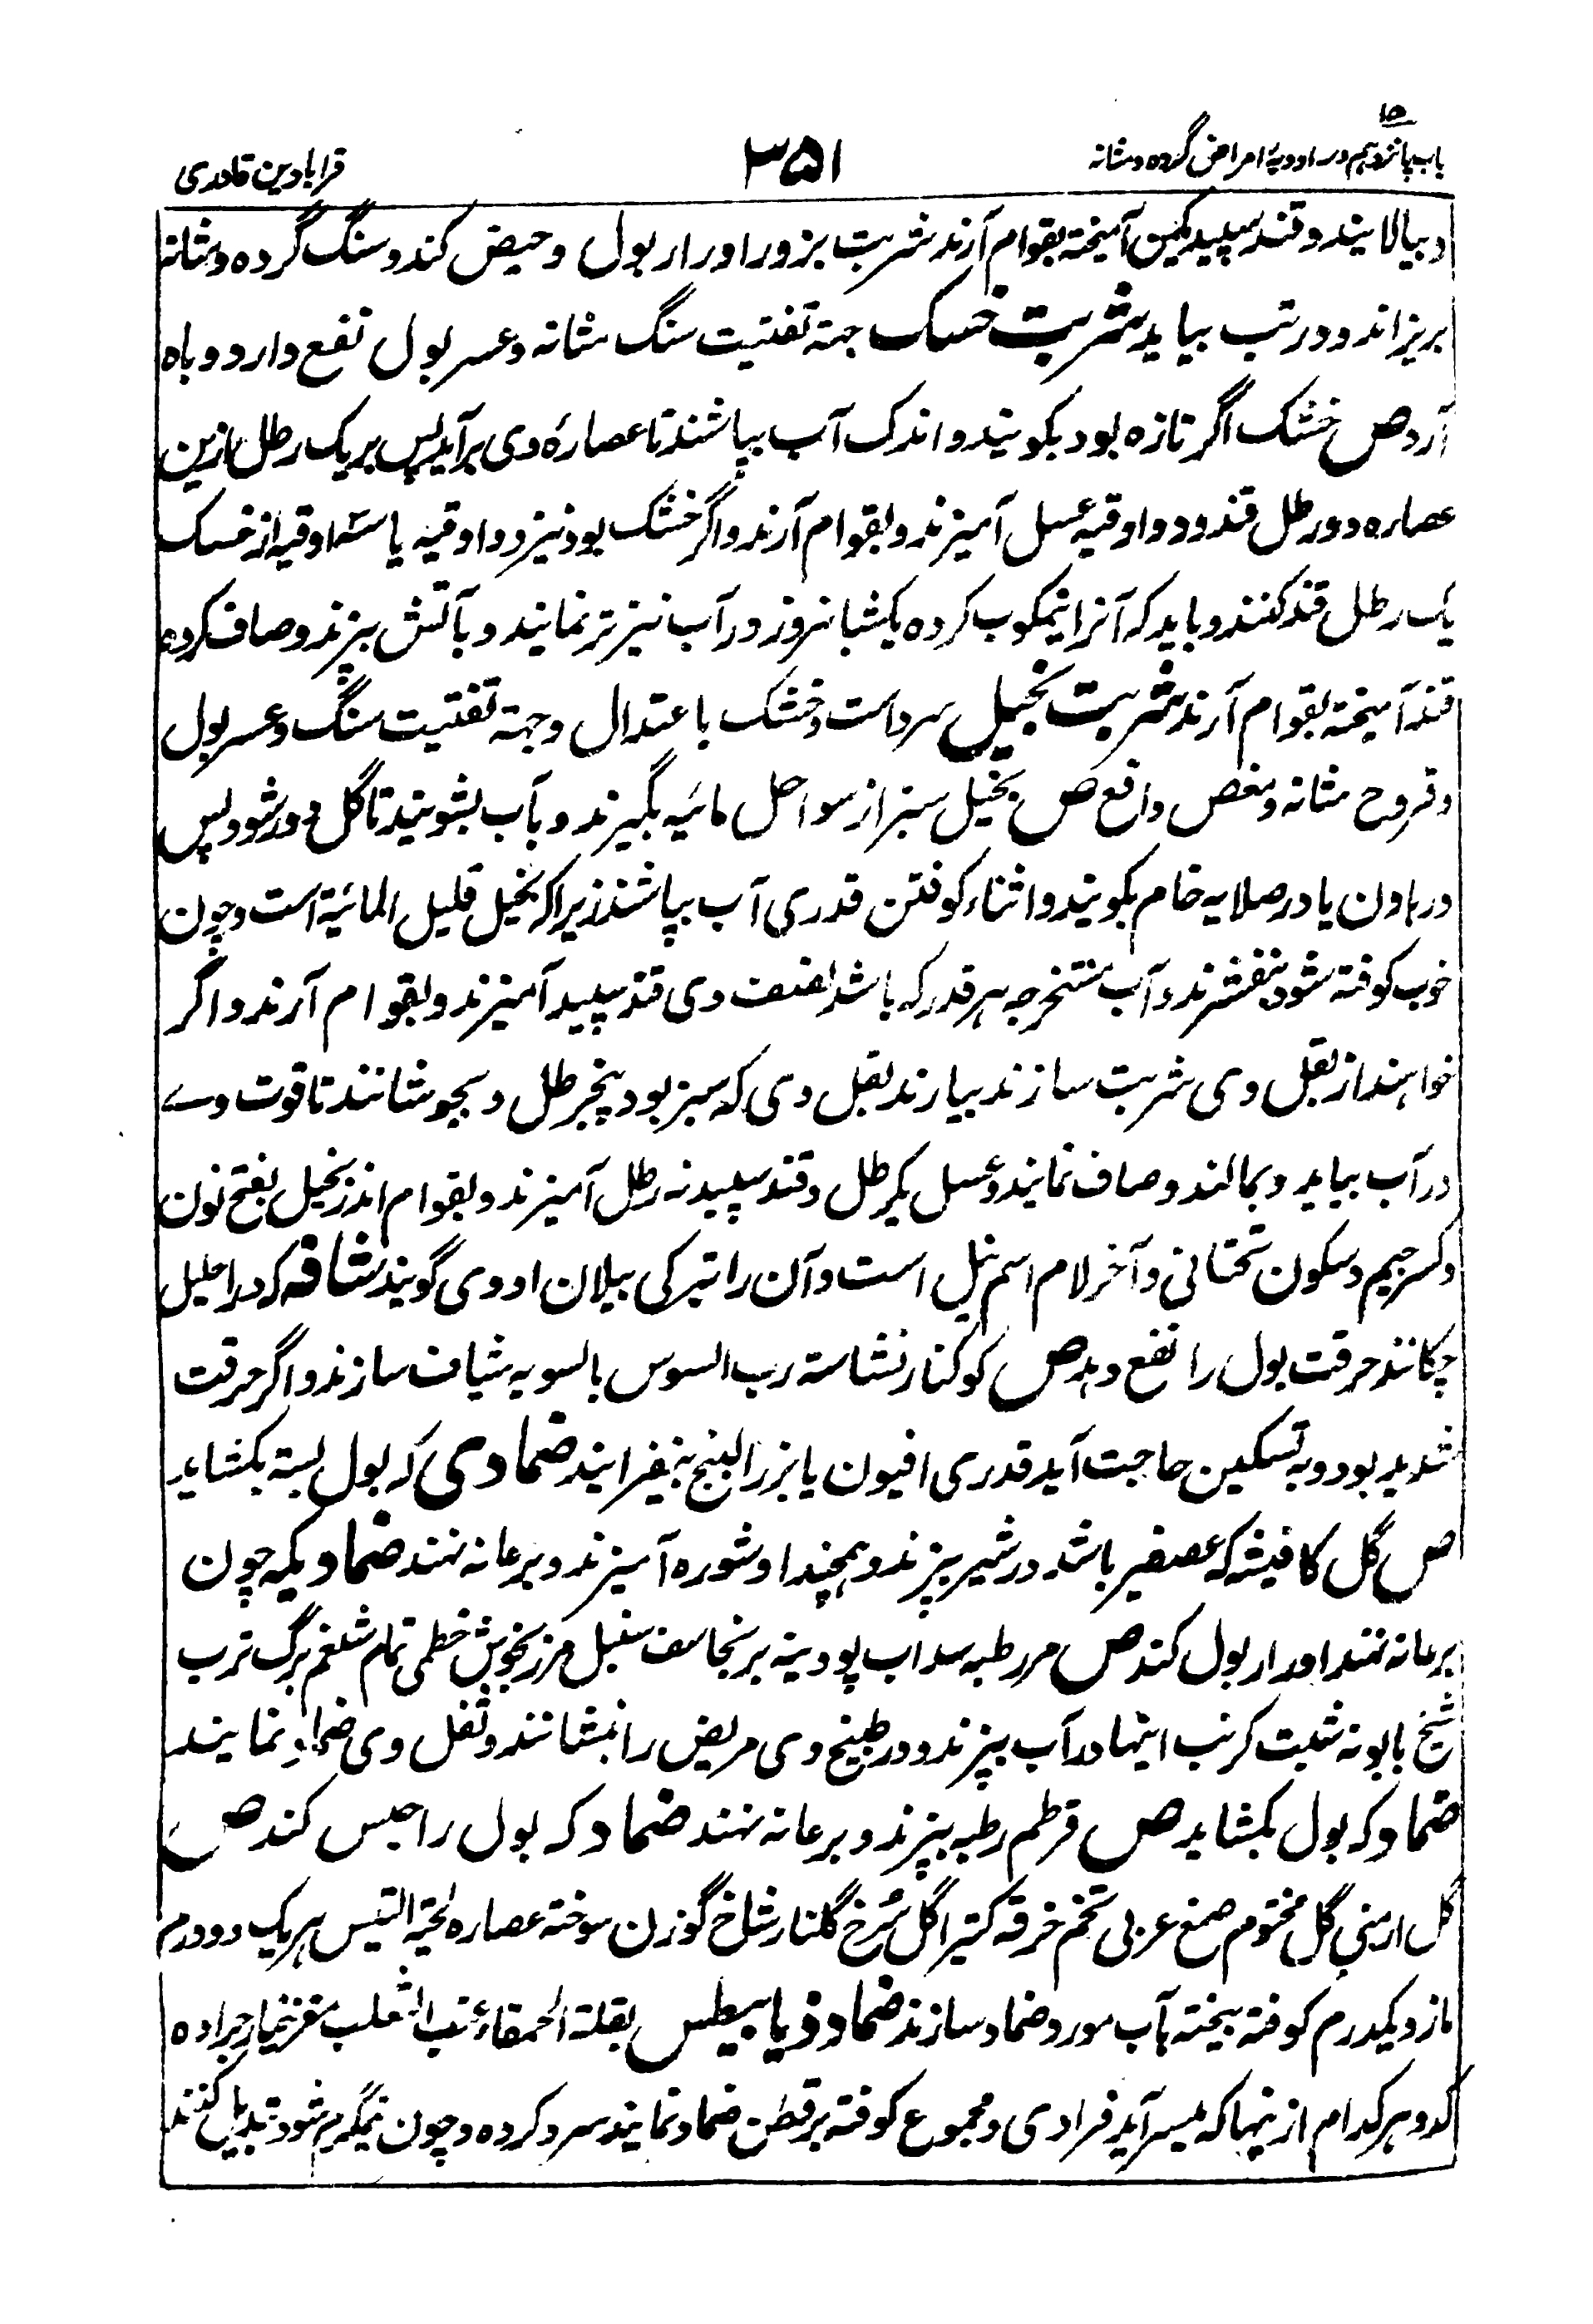 باب پانزدهم در ادویهٔ امراض گرده و مثانه
۳۵۱
قرابادین قادری
و بپالایند و قند سپید یکمن آمیخته بقوام آرند شربت بزور ادرار بول و حیض کند و سنگ گرده و مثانه
بریزاند و در تب بیاید شربت خسک جهة تفتیت سنگ مثانه و عسر بول نفع دارد و باه
آرد ص خشک اگر تازه بود بکوبند و اندک آب بپاشند تا عصارهٔ وی برآید پس بر یک رطل ازین
عصاره دو رطل قند و دو اوقیه عسل آمیزند و بقوام آرند و اگر خشک بود نیز دو اوقیه یا سه اوقیه از خسک
یک رطل قند کنند و باید که آنرا نیمکوب کرده یکشبانروز در آب نیز تر نمایند و بآتش بپزند و صاف کرده
قند آمیخته بقوام آرند شربت نجیل سرد است و خشک باعتدال و جهة تفتیت سنگ و عسر بول
و قروح مثانه و مغص دافع ص نجیل سبز از سواحل مائیه بگیرند و بآب بشویند تا گل دور شود پس
در هاون یا در صلایه خام بکوبند و اثناء کوفتن قدری آب بپاشند زیرا که نجیل قلیل المائیة است و چون
خوب کوفته شود بیفشرند و آب مستخرجه هر قدر که باشد بضعف وی قند سپید آمیزند و بقوام آرند و اگر
خواهند از بقل وی شربت سازند بیارند بقل وی که سبز بود پنجرطل و بجوشانند تا قوت وے
در آب بیاید و بمالند و صاف نمایند و عسل یکرطل و قند سپید نه رطل آمیزند و بقوام آرند نجیل بفتح نون
و کسر جیم و سکون تحتانی و آخر لام اسم نیل است و آن را بترکی بیلان اودی گویند شافه که در احلیل
چکانند حرقت بول را نفع دهد ص کوکنار نشاسته رب السوس بالسویه شیاف سازند و اگر حرقت
شدید بود و به تسکین حاجت آید قدری افیون یا بزر البنج بیفزایند ضمادی که بول بسته بکشاید
ص گل کافیشه که عصفر باشد در شیر بپزند و همچند او شوره آمیزند و بر عانه نهند ضمادیکه چون
بر عانه نهند ادرار بول کند ص مر رطبه سداب پودینه برنجاسف سنبل مرزنجوش خطمی تمام شلغم برگ ترب
شیح بابونه شبت کرنب اینها در آب بپزند و در طبیخ وی مریض را بنشانند و ثفل وی ضماد نمایند
ضماد که بول بکشاید ص قرطم رطبه بپزند و بر عانه نهند ضماد که بول را حبس کند ص
گل ارمنی گل مختوم صمغ عربی تخم خرفه کتیرا گل سرخ گلنار شاخ گوزن سوخته عصاره لحیة التیس هریک دو درم
مازو یکدرم کوفته بیخته بآب مورد ضماد سازند ضماد ذیابیطس بقلة الحمقاء عنب الثعلب مغز خیار جراده
کدو هر کدام از اینها که میسر آید فرادی و مجموع کوفته بر قطن ضماد نمایند سرد کرده و چون نیمگرم شود تبدیل کنند